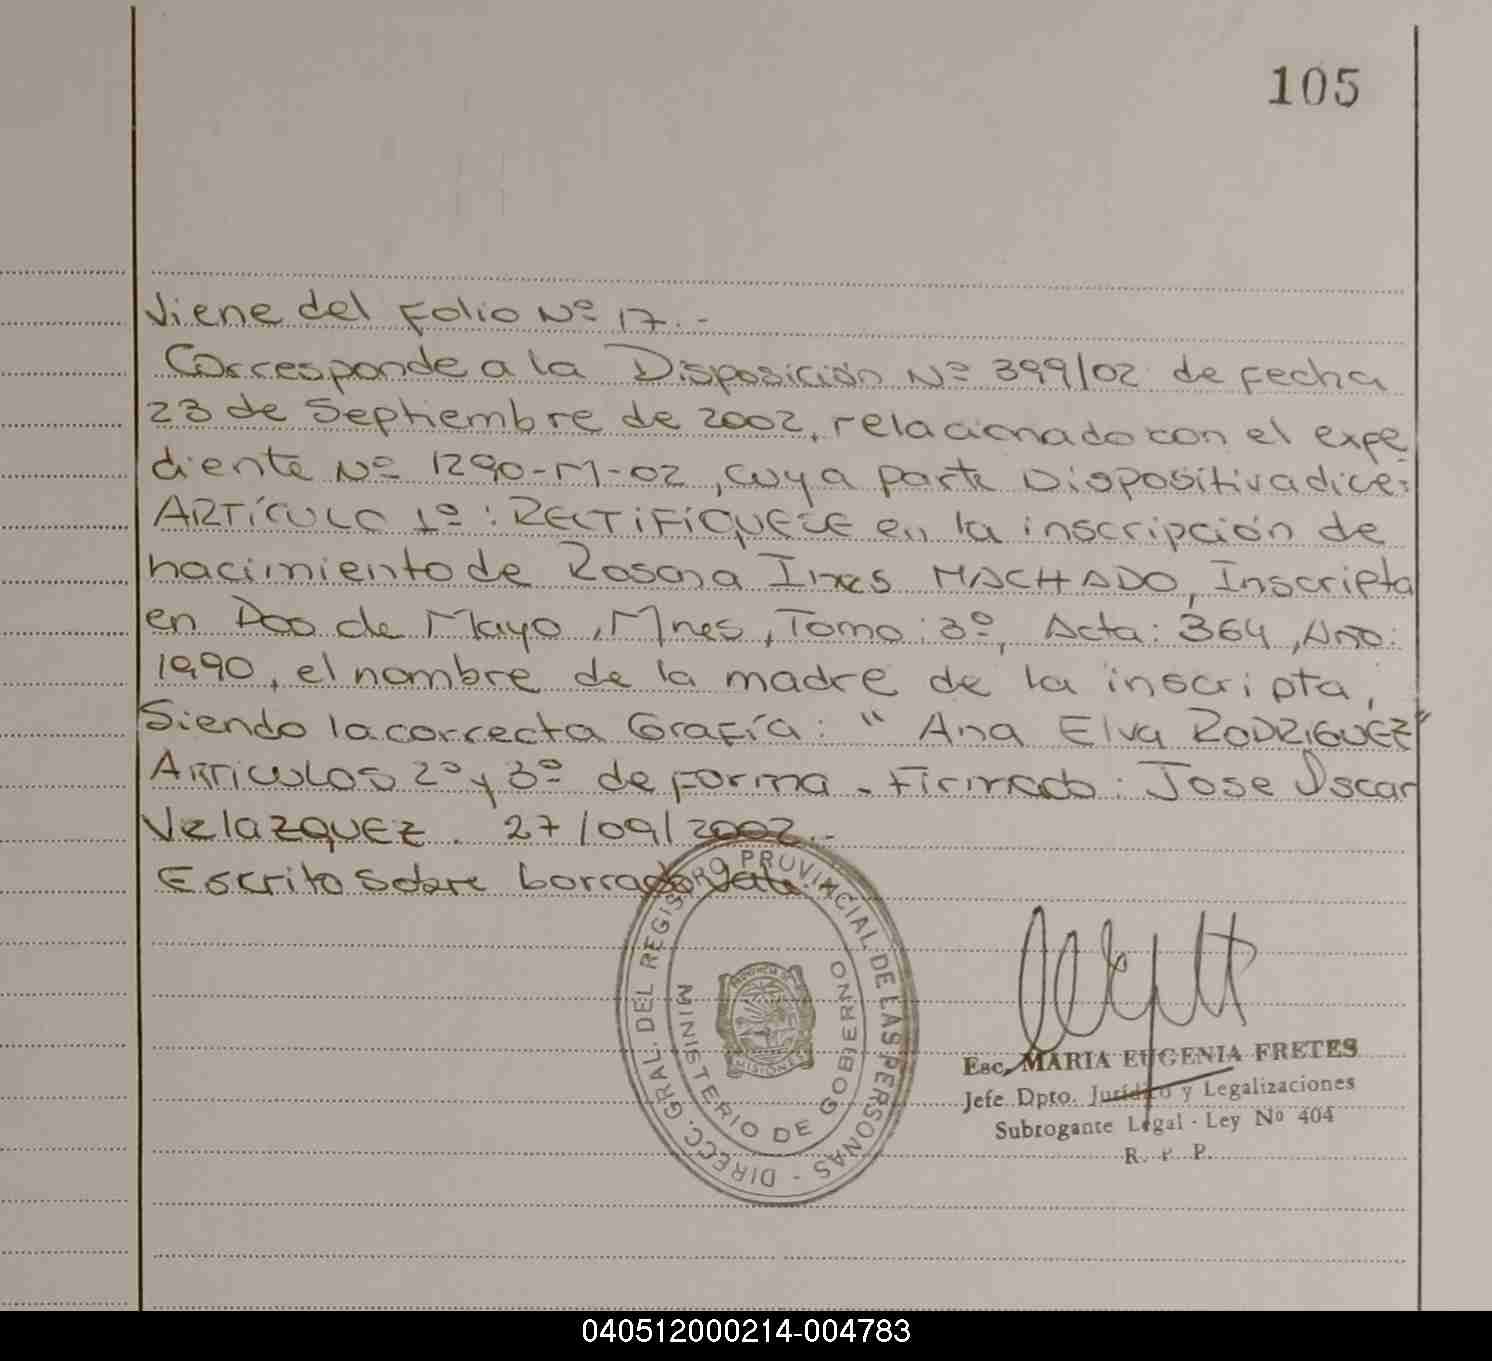 105
Viene del Folio Nº 17.-
Corresponde a la Disposición Nº 399/02 de fecha
23 de Septiembre de 2002, relacionado con el expe
diente Nº 1290-M-02, cuya parte Dispositiva dice:
ARTÍCULO 1º: RECTIFÍQUESE en la inscripción de
nacimiento de Rosana Ines MACHADO, Inscripta
en Dos de Mayo, Mnes, Tomo: 3º, Acta: 364, Año:
1990, el nombre de la madre de la inscripta,
Siendo la correcta Grafía: "Ana Elva RODRIGUEZ"
Articulos 2º y 3º de forma. Firmado: Jose Oscar
Velazquez. 27/09/2002.-
Escrito Sobre borrado Vale.
DIRECC. GRAL. DEL REGISTRO PROVINCIAL DE LAS PERSONAS -
MINISTERIO DE GOBIERNO
PROVINCIA DE
MISIONES
Esc. MARIA EUGENIA FRETES
Jefe Dpto. Jurídico y Legalizaciones
Subrogante Legal - Ley Nº 404
R. P. P.
040512000214-004783